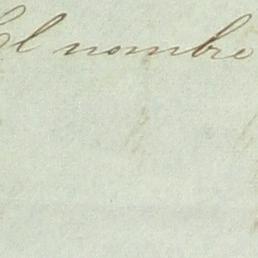 El nombre